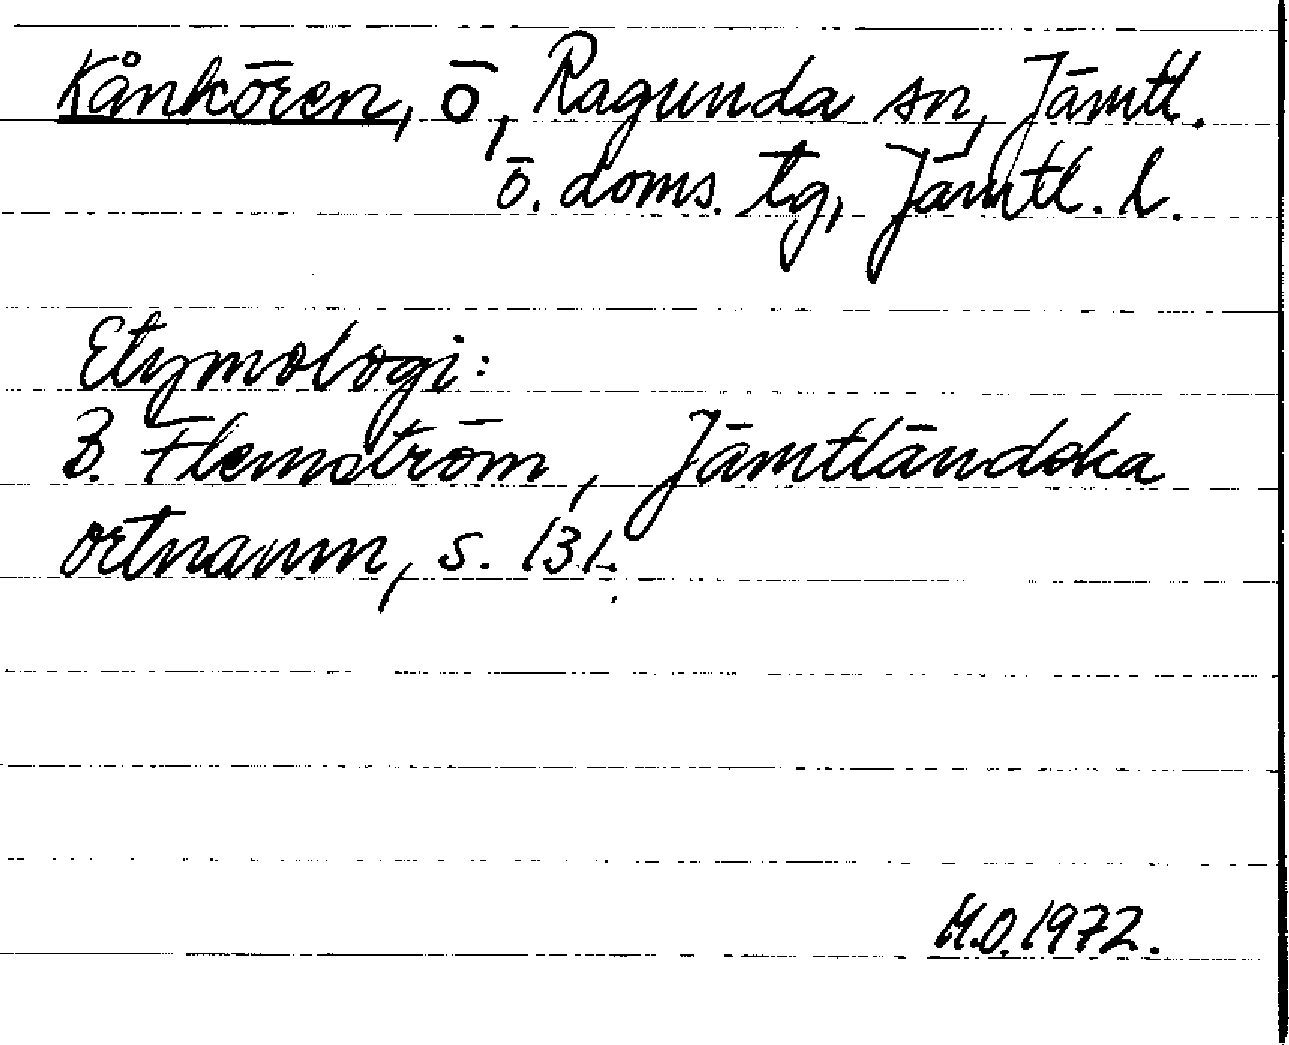 Kånkören, ö, Ragunda sn, Jämtl.
ö. doms. tg, Jämtl. l.
Etymologi:
B. Flemström, Jämtländska
ortnamn, s. 131.
M.O. 1972.